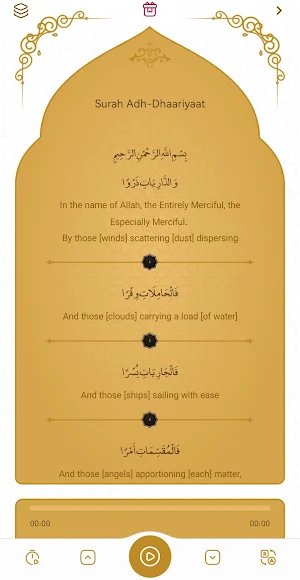 Surah Adh-Dhaariyaat
بِسْمِ اللَّهِ الرَّحْمَٰنِ الرَّحِيمِ
وَالذَّارِيَاتِ ذَرْوًا
In the name of Allah, the Entirely Merciful, the
Especially Merciful.
By those [winds] scattering [dust] dispersing
فَالْحَامِلَاتِ وِقْرًا
And those [clouds] carrying a load [of water]
فَالْجَارِيَاتِ يُسْرًا
And those [ships] sailing with ease
فَالْمُقَسِّمَاتِ أَمْرًا
And those [angels] apportioning [each] matter,
00:00 00:00